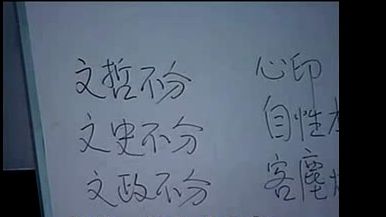 文哲不分 心印
文史不分 自性
文政不分 客塵